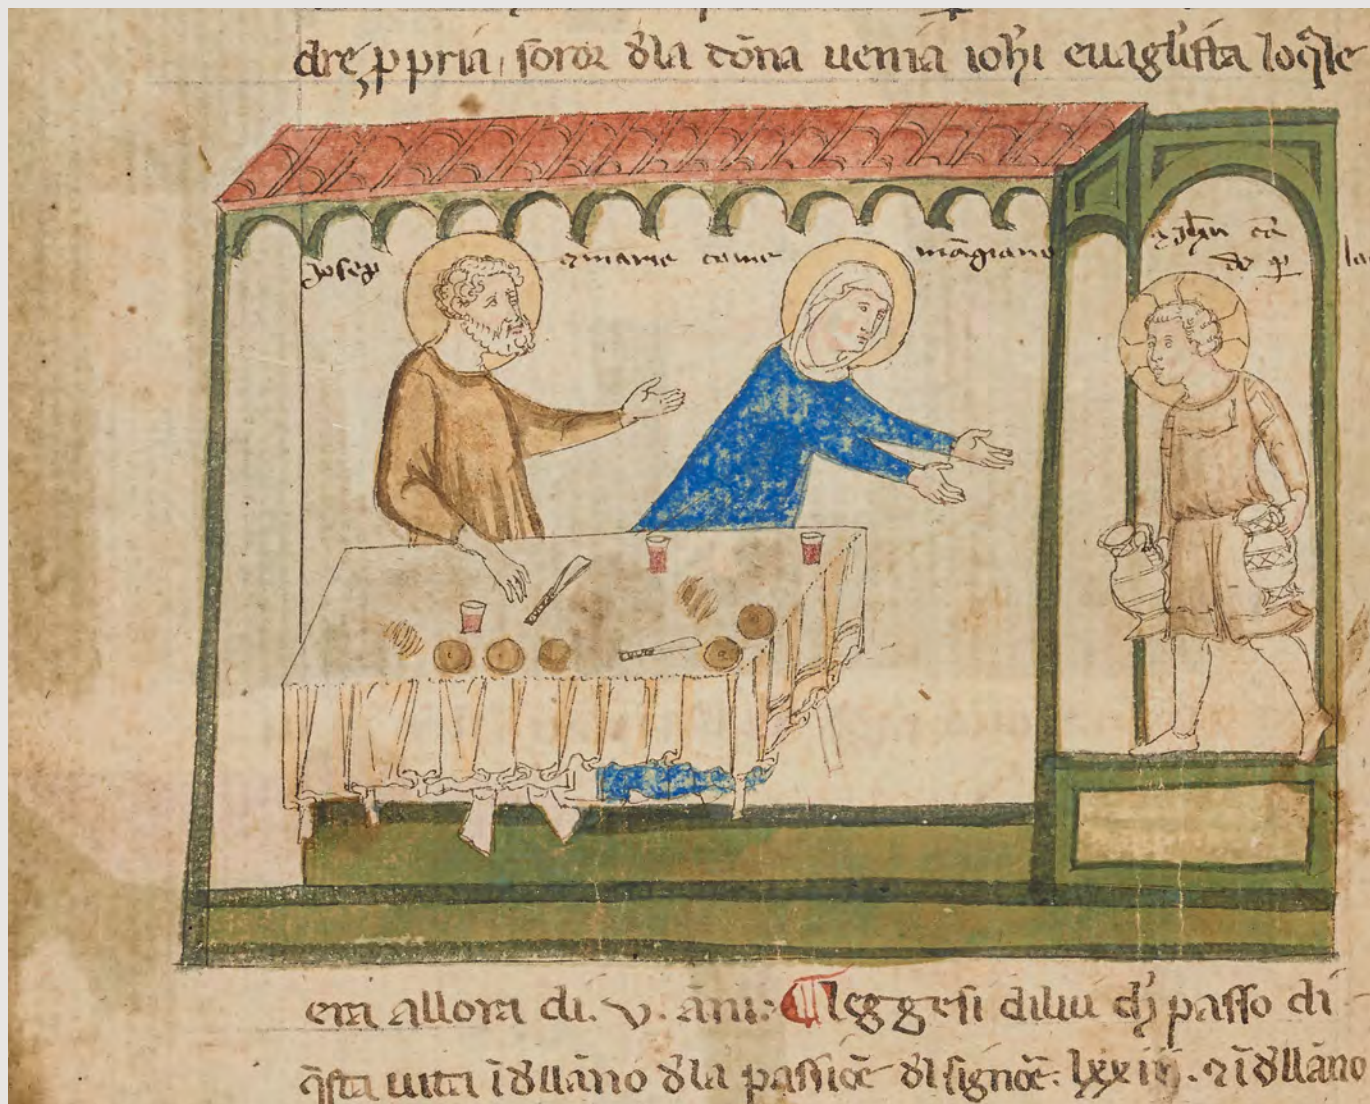 dre ꝓpria, soror d̄la dōna uenia ioh̄i euāglista loq̄le
Josep
⁊ maria come
māgiano
⁊ Jh̄u cā
de ꝑ
la
era allora di. v. āni: ¶ leggesi di lui ch̄ passo di
q̄sta uita ī d̄llāno d̄la passiōe dl signōe. lxxiiij. ⁊ ī d̄llāno